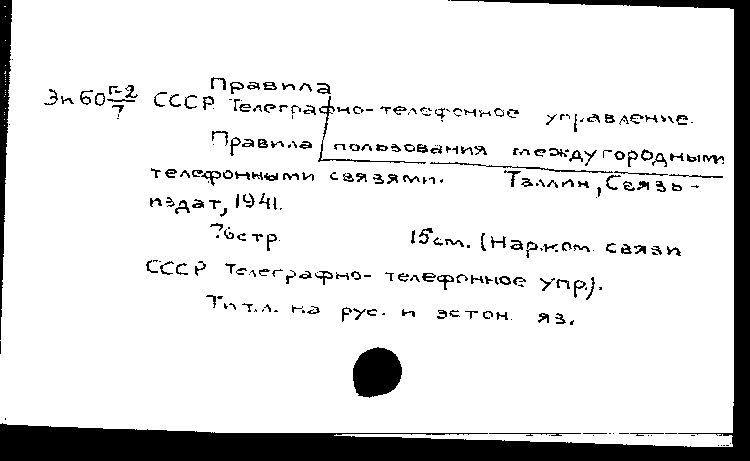 Правила
Эп 60 Г-2/7 СССР Телеграфно-телефонное управление.
Правила пользования междугородными
телефонными связями. Таллин, Связь-
издат, 1941.
76стр 15см. (Нар.ком. связи
СССР Телеграфно-телефонное упр.).
Тит.л. на рус. и эстон. яз.